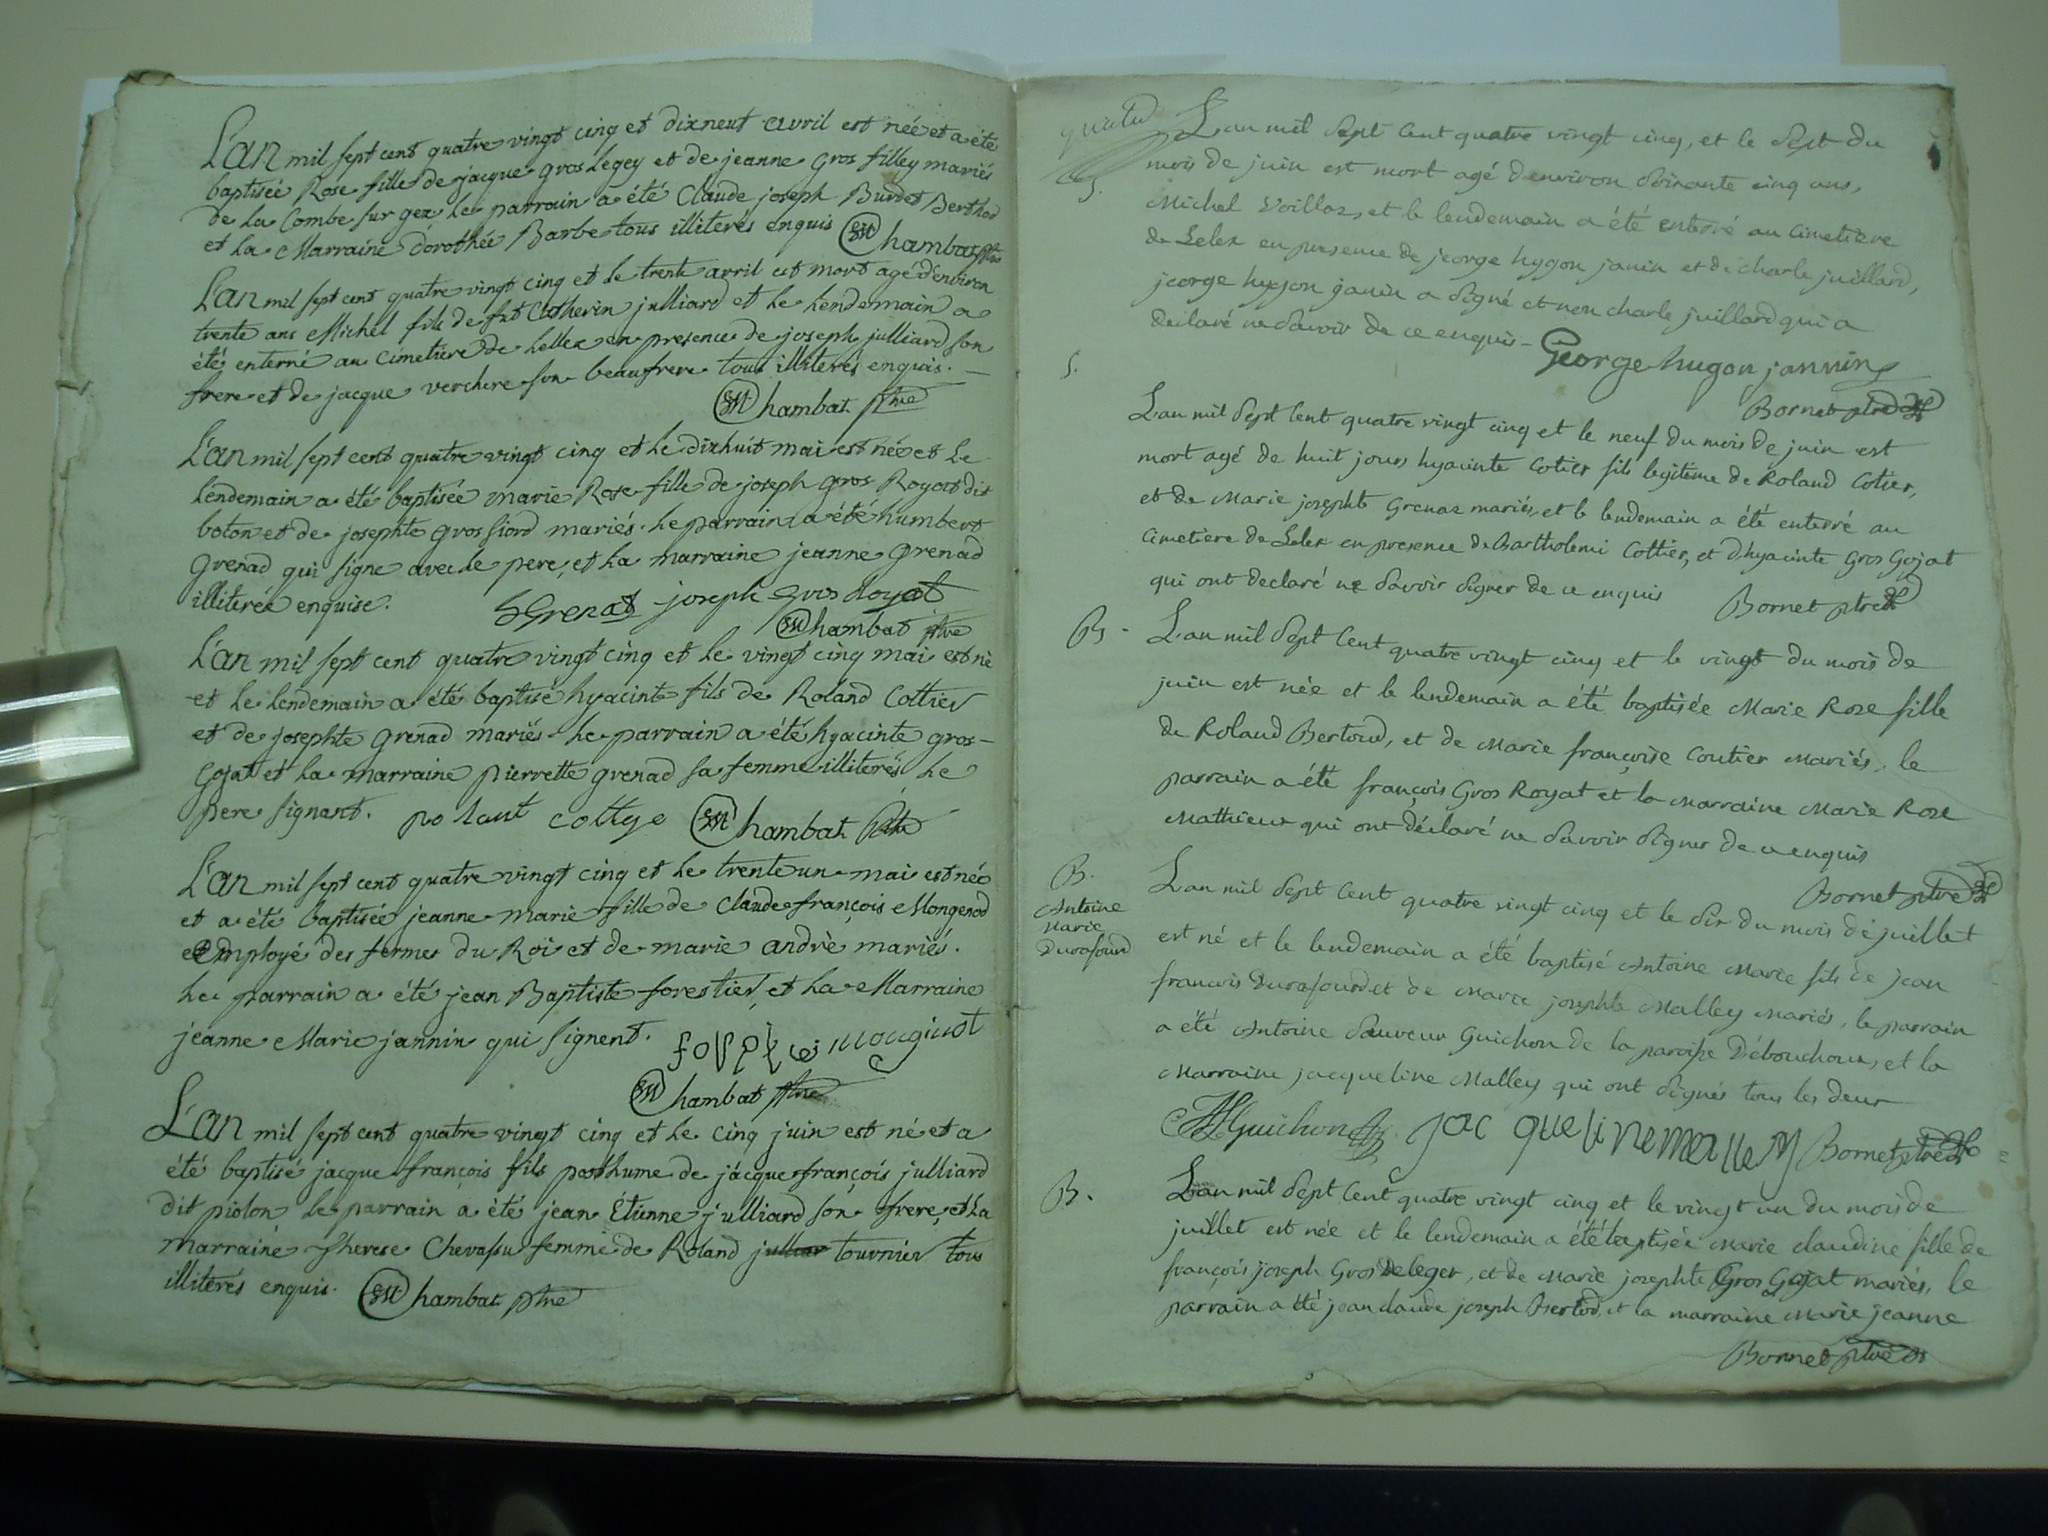 L'an mil sept cent quatre vingt cinq et dixneuf avril est née et a été
baptisée Rose fille de jacque gros Legey et de jeanne gros filley mariés
de la Combe sur gex le parrain a été Claude joseph Burdet Berthod
et la Marraine dorothée Barbe tous illiterés enquis Chambat ptre
L'an mil sept cent quatre vingt cinq et le trente avril est mort agé d'environ
trente ans Michel fils de fut Catherin julliard et le lendemain a
été enterné au cimetière de Lellex en presence de joseph julliard son
frere et de jacque verchere son beaufrere tous illiterés enquis.
Chambat ptre
L'an mil sept cent quatre vingt cinq et le dixhuit mai est née et le
lendemain a été baptisée marie Rose fille de joseph gros Royat dit
boton et de josephte gros fiord mariés. le parrain a été humbert
grenad qui signe avec le pere, et la marraine jeanne grenad
illiterée enquise. hGrenat joseph gros Royat
Chambat ptre
L'an mil sept cent quatre vingt cinq et le vingt cinq mai est né
et le lendemain a été baptisé hyacinte fils de Roland Cottier
et de josephte grenad mariés le parrain a été hyacinte gros-
Gojat et la marraine pierrette grenad sa femme illiterés le
pere signant. po lant cottye Chambat ptre
L'an mil sept cent quatre vingt cinq et le trente un mai est née
et a été baptisée jeanne marie fille de Claude françois Mongenod
employé des fermes du Roi et de marie andrè mariés.
le parrain a été jean Baptiste forestier, et la Marraine
jeanne Marie jannin qui signent.
Chambat ptre
L'an mil sept cent quatre vingt cinq et le cinq juin est né et a
été baptisé jacque françois fils posthume de jacque françois julliard
dit piolon le parrain a été jean Étienne julliard son frere, et la
marraine Therese Chevassu femme de Roland tournier tous
illiterés enquis. Chambat ptre
L'an mil sept cent quatre vingt cinq, et le sept du
mois de juin est mort agé d'environ soixante cinq ans,
S.
Michel Voillaz, et le lendemain a été enterré au cimetière
de Lelex en presence de jeorge hygon janin et de charle juillard,
jeorge hygon janin a signé et non charle juillard qui a
declaré ne savoir de ce enquis - George hugon jannin
Bornet ptre
S.
L'an mil sept cent quatre vingt cinq et le neuf du mois de juin est
mort agé de huit jours hyacinte Cotier fils legiteme de Roland Cotier,
et de Marie josephte Grenaz mariés, et le lendemain a été enterré au
Cimetiere de Lelex en presence de Bartholemi Cottier, et d'hyacinte Gros Gojat
qui ont declaré ne savoir signer de ce enquis Bornet ptre
B - L'an mil sept cent quatre vingt cinq et le vingt du mois de
juin est née et le lendemain a été baptisée Marie Roze fille
de Roland Bertoud, et de Marie françoise Coutier Mariés, le
parrain a été françois Gros Royat et la Marraine Marie Roze
Mathieux qui ont déclaré ne savoir signer de ce enquis
Bornet ptre
B.
Antoine
Marie
Durafourd
L'an mil sept cent quatre vingt cinq et le six du mois de juillet
est né et le lendemain a été baptisé Antoine Marie fils de jean
francois Durafourd et de Marie josephte Malley Mariés, le parrain
a été Antoine Sauveur Guichon de la paroisse Débouchoux, et la
Marraine jacqueline Malley qui ont signés tous les deux
Guichon jac queline malley Bornet ptre
B. L'an mil sept cent quatre vingt cinq et le vingt un du mois de
juillet est née et le lendemain a été baptisée Marie claudine fille de
françois joseph Gros Deleger, et de Marie josephte Gros Gojat mariés, le
parrain a été jean claude joseph Bertod, et la marraine Marie jeanne
Bornet ptre